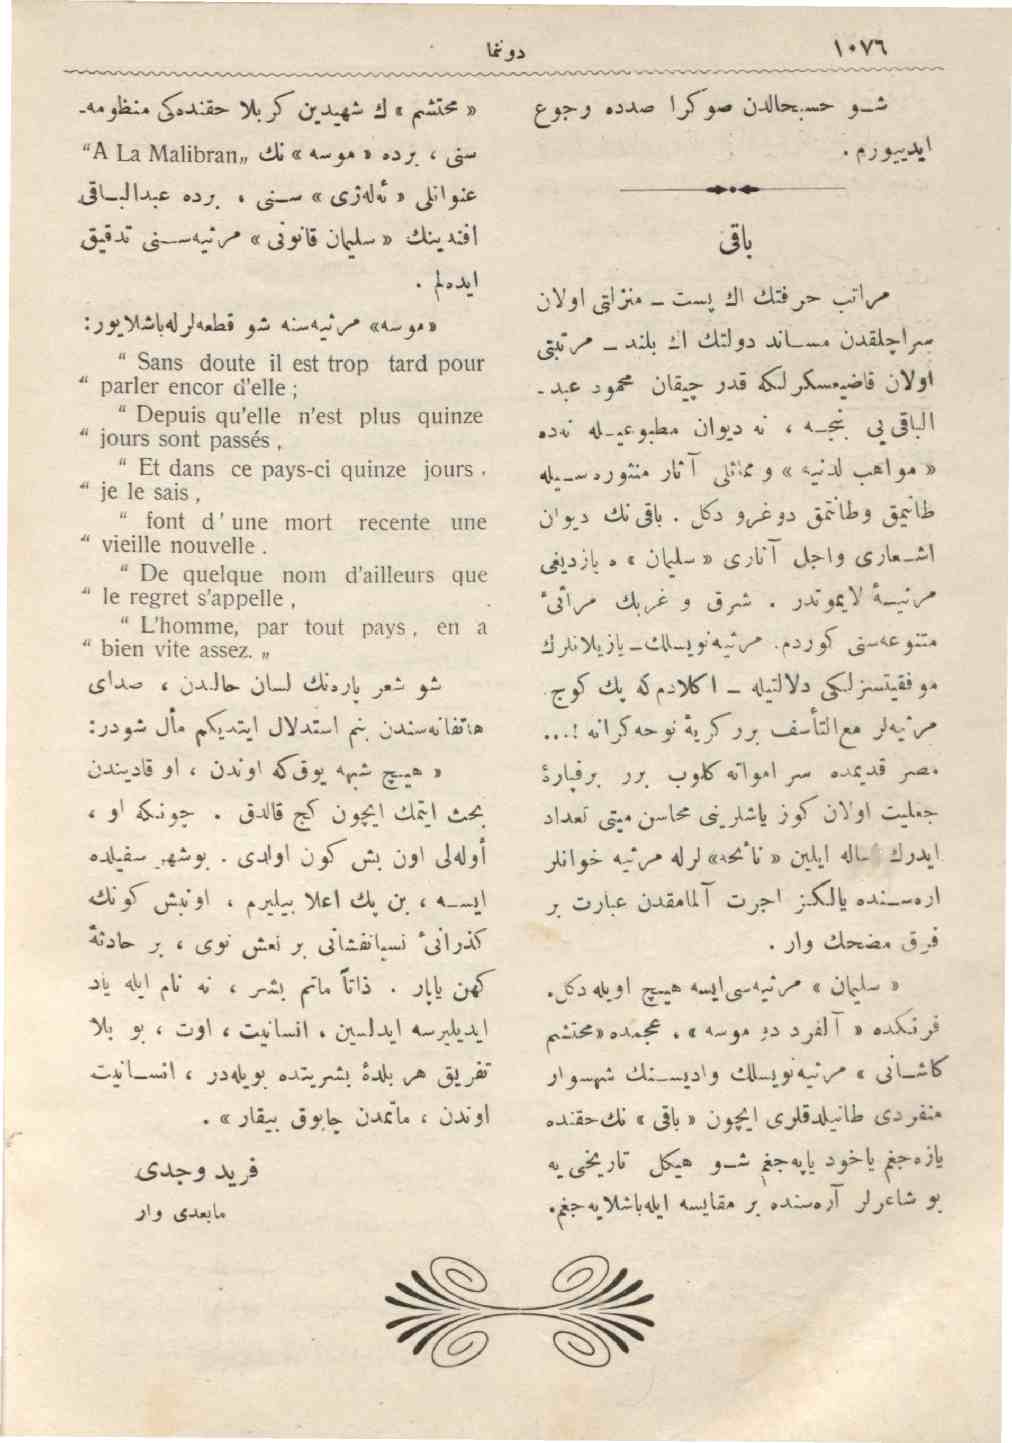 ١٠٧٦
دوننما
شو حسبحالدن صوكرا صدده رجوع
ايدييورم .
باقی
مراتب حرفتك اك پست ــ منزلتی اولان
سراچلقدن مساند دولتك اك بلند ــ مرتبتی
اولان قاضیعسكرلكه قدر چیقان محمود عبد ـ
الباقی یی بنجه ، نه دیوان مطبوعیله نه‌ده
« مواهب لدنیه » و مماثلی آثار منثوره‌سیله
طانیمق وطانتمق دوغرو دكل . باقی نك دیوان
اشعاری واجل آثاری « سلیمان » ه یازدیغی
مرثیهٔ لایموتدر . شرق و غربك مراثیٔ
متنوعه‌سنی كوردم. مرثیه‌نویسلك ــ یازیلانلرك
موفقیتسزلكی دلالتیله ــ اكلادم‌كه پك كوج.
مرثیه‌لر مع‌التأسف برر كریهٔ نوحه‌كرانه !...
مصر قدیمده سر امواته كلوب برر برقپارهٔ
جعلیت اولان كوز یاشلرینی محاسن میتی تعداد
ایدرك اساله ایلین « نائحه» لرله مرثیه خوانلر
اره‌سنده یالكز اجرت آلمامقدن عبارت بر
فرق مضحك وار .
« سلیمان » مرثیه‌سی ایسه هیچ اویله دكل.
فرنكده « آلفرد دو موسه » ، عجمده «محتشم
كاشانی » مرثیه‌نویسلك وادیسنك شهسوار
منفردی طانیلدقلری ایچون « باقی » نك حقنده
یازه‌جغم یاخود یاپه‌جغم شو هیكل تاریخی یه
بو شاعرلر آره‌سنده بر مقایسه ایله‌باشلایه‌جغم.
« محتشم » ك شهیدین كربلا حقنده‌كی منظومه‌ـ
سنی ، برده « موسه » نك „A La Malibran“
عنوانلی « ئه‌له‌ژی » سنی ، برده عبدالباقی
افندینك « سلیمان قانونی » مرثیه‌سنی تدقیق
ایده‌لم .
«موسه» مرثیه‌سنه شو قطعه‌لرله‌باشلایور:
“ Sans doute il est trop tard pour
“ parler encor d’elle ;
“ Depuis qu’elle n’est plus quinze
“ jours sont passés ,
“ Et dans ce pays-ci quinze jours .
“ je le sais ,
“ font d’ une mort recente une
“ vieille nouvelle .
“ De quelque nom d’ailleurs que
“ le regret s’appelle ,
“ L’homme, par tout pays , en a
“ bien vite assez. „
شو شعر پاره‌نك لسان حالندن ، صدای
هاتفانه‌سندن بنم استدلال ایتدیكم مأل شودر:
« هیچ شبهه یوق‌كه اوندن ، او قادیندن
بحث ایتمك ایچون كج قالدق . چونكه او ،
أوله‌لی اون بش كون اولدی . بوشهر سفیلده
ایسه ، بن پك اعلا بیلیرم ، اونبش كونك
كذرانیٔ نسیانفشانی بر نعش نوی ، بر حادثهٔ
كهن یاپار . ذاتاً ماتم بشر ، نه نام ایله یاد
ایدیلیرسه ایدلسین ، انسانیت ، اوت ، بو بلا
تفریق هر بلدهٔ بشریتده بویله‌در ، انسانیت
اوندن ، ماتمدن چابوق بیقار » .
فرید وجدی
مابعدی وار